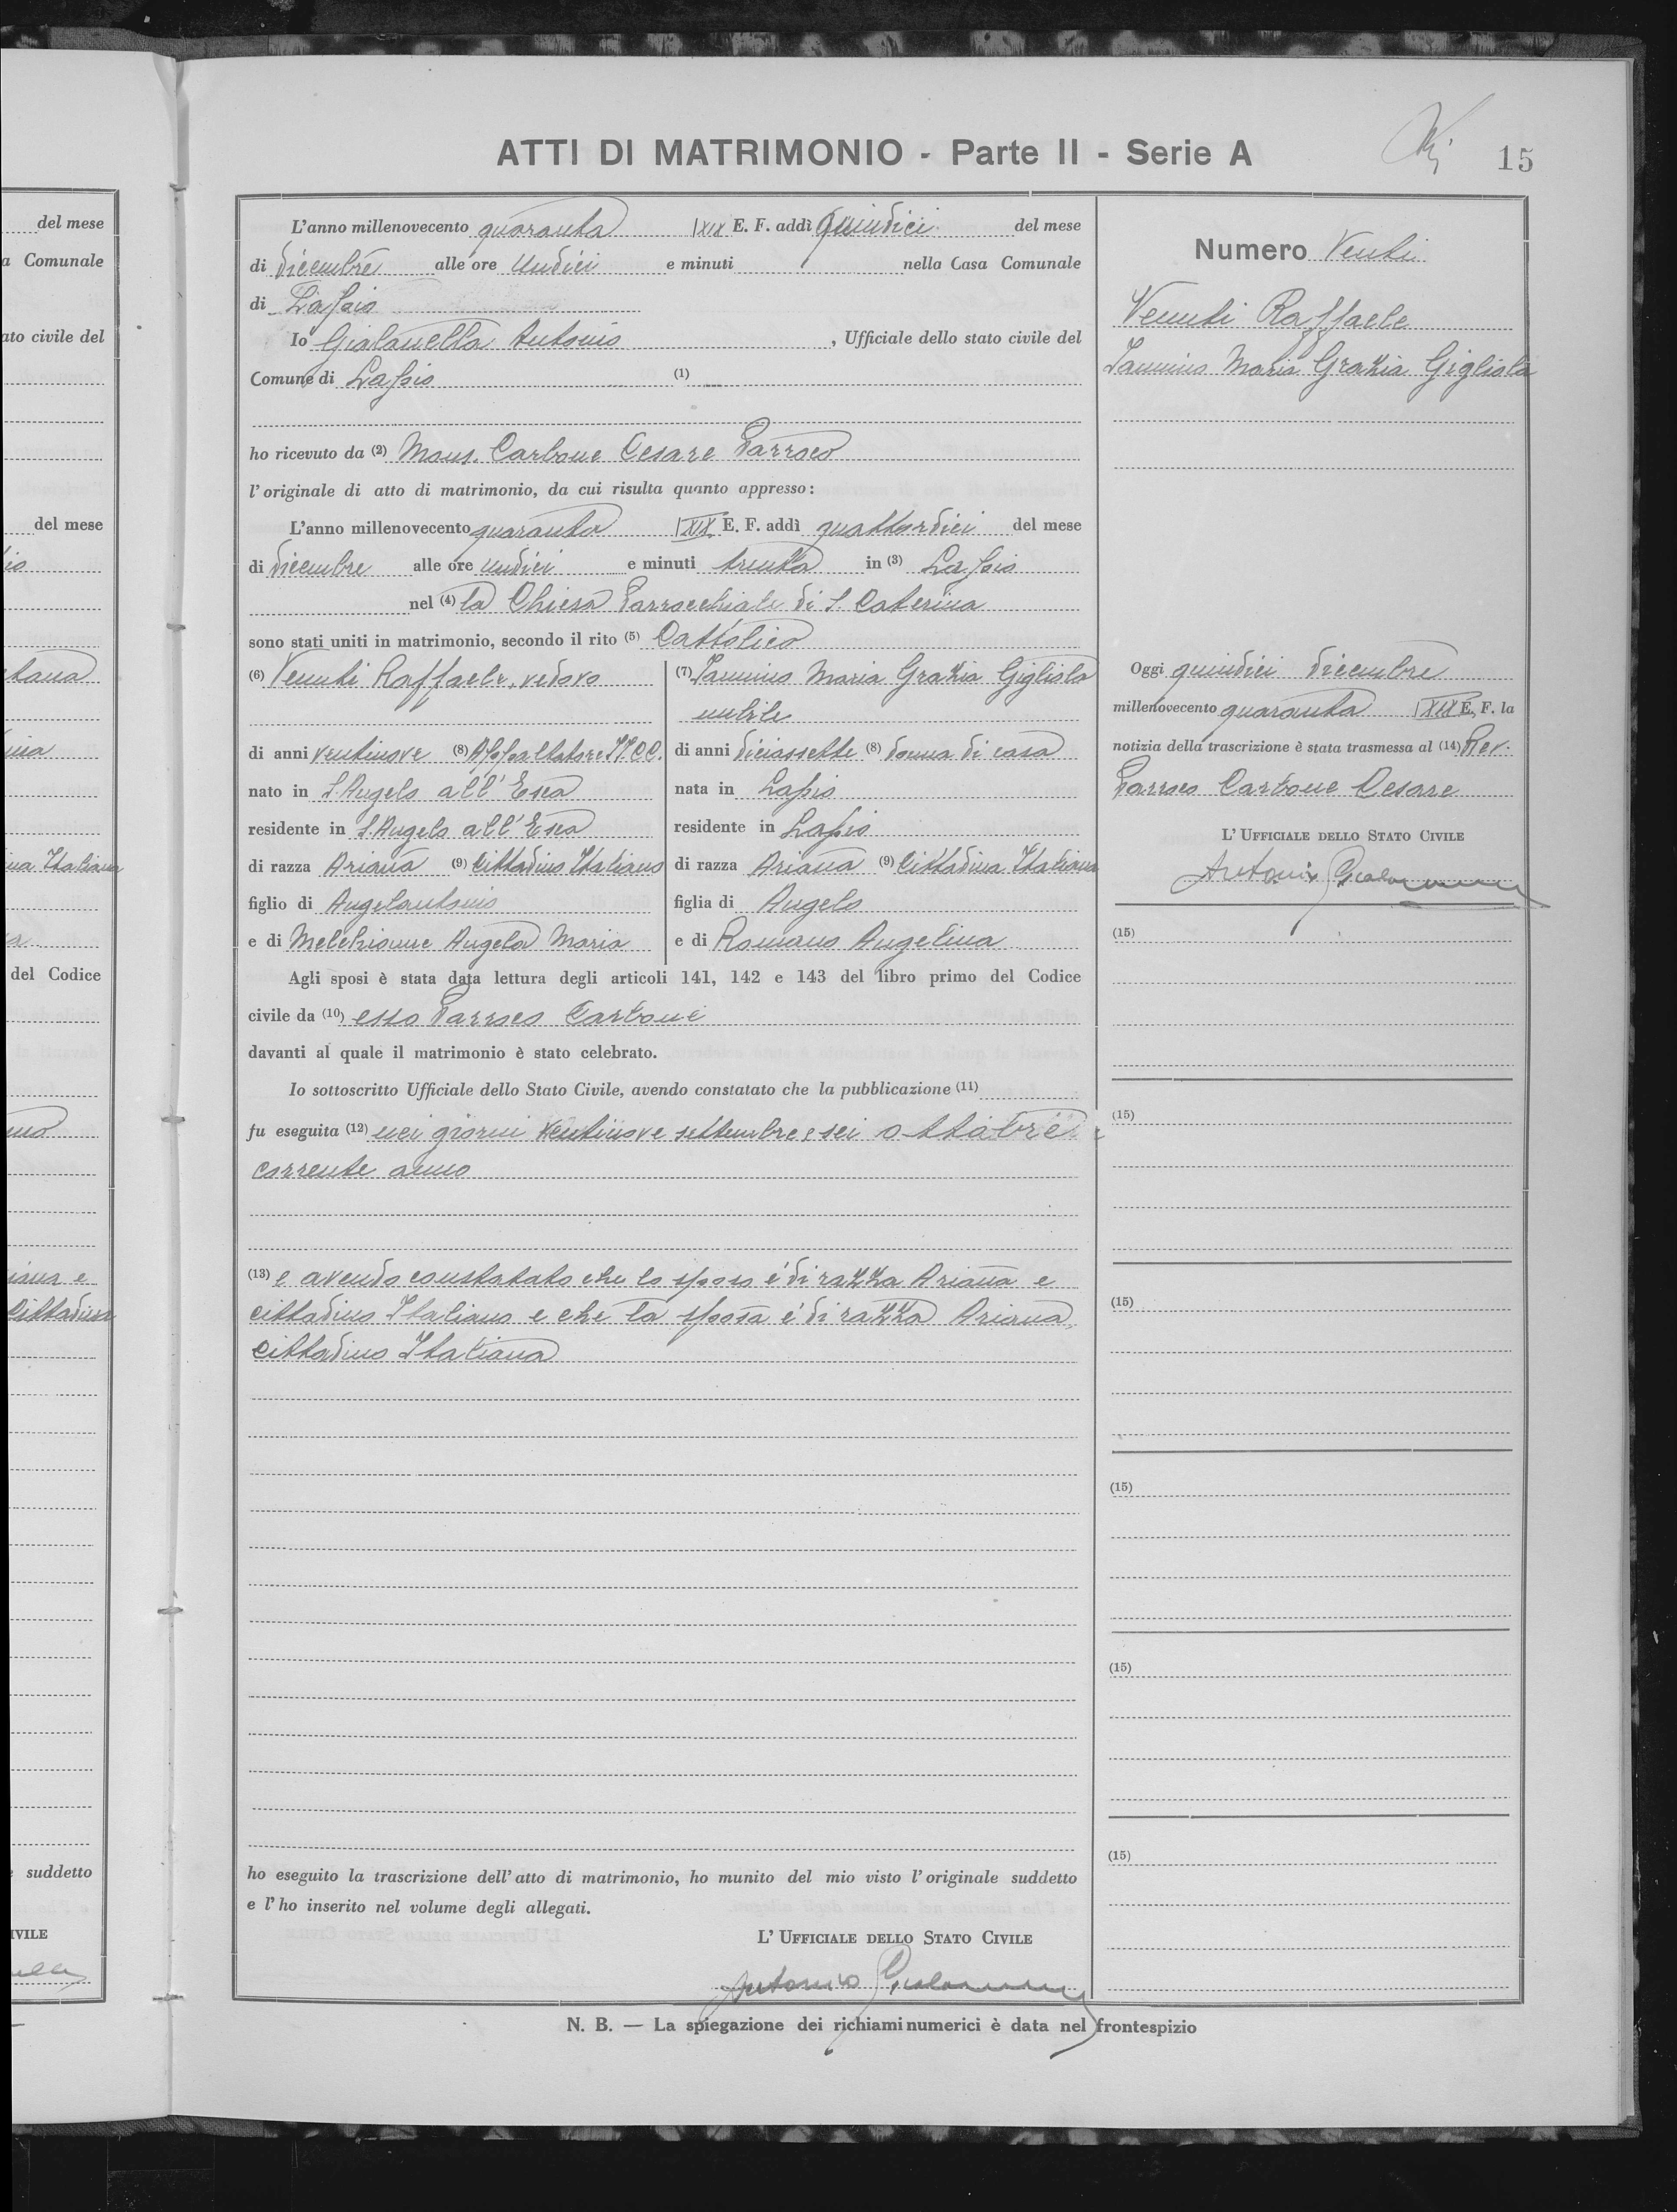 ATTI DI MATRIMONIO - Parte II - Serie A
15
L'anno millenovecento quaranta XIX E. F. addì quindici del mese
di dicembre alle ore undici e minuti nella Casa Comunale
di Lapio
Io Gialanella Antonio, Ufficiale dello stato civile del
Comune di Lapio (1)
ho ricevuto da (2) Mons. Carbone Cesare Parroco
l'originale di atto di matrimonio, da cui risulta quanto appresso:
L'anno millenovecento quaranta XIX E. F. addì quattordici del mese
di dicembre alle ore undici e minuti trenta in (3) Lapio
nel (4) la Chiesa Parrocchiale di S. Caterina
sono stati uniti in matrimonio, secondo il rito (5) Cattolico
(6) Venuti Raffaele, vedovo
di anni ventinove (8) Appaltatore II.CC.
nato in S. Angelo all'Esca
residente in S. Angelo all'Esca
di razza Ariana (9) Cittadino Italiano
figlio di Angelantonio
e di Melchionne Angela Maria
(7) Iannino Maria Grazia Gigliola
nubile
di anni diciassette (8) donna di casa
nata in Lapio
residente in Lapio
di razza Ariana (9) Cittadina Italiana
figlia di Angelo
e di Romano Angelina
Agli sposi è stata data lettura degli articoli 141, 142 e 143 del libro primo del Codice
civile da (10) esso Parroco Carbone
davanti al quale il matrimonio è stato celebrato.
Io sottoscritto Ufficiale dello Stato Civile, avendo constatato che la pubblicazione (11)
fu eseguita (12) nei giorni ventinove settembre e sei ottobre
corrente anno
(13) e avendo constatato che lo sposo è di razza Ariana e
cittadino Italiano e che la sposa è di razza Ariana
cittadino Italiana
ho eseguito la trascrizione dell'atto di matrimonio, ho munito del mio visto l'originale suddetto
e l'ho inserito nel volume degli allegati.
L'UFFICIALE DELLO STATO CIVILE
Antonio Gialanella
N. B. — La spiegazione dei richiami numerici è data nel frontespizio
Numero Venti
Venuti Raffaele
Iannino Maria Grazia Gigliola
Oggi quindici dicembre
millenovecento quaranta XIX E. F. la
notizia della trascrizione è stata trasmessa al (14) Rev.
Parroco Carbone Cesare
L'UFFICIALE DELLO STATO CIVILE
Antonio Gialanella
(15)
(15)
(15)
(15)
(15)
(15)
del mese
a Comunale
ato civile del
del mese
del Codice
suddetto
IVILE